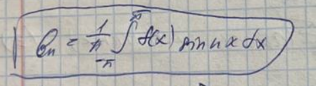 bₙ = 1/π ∫_{-π}^{π} f(x) sin nx dx